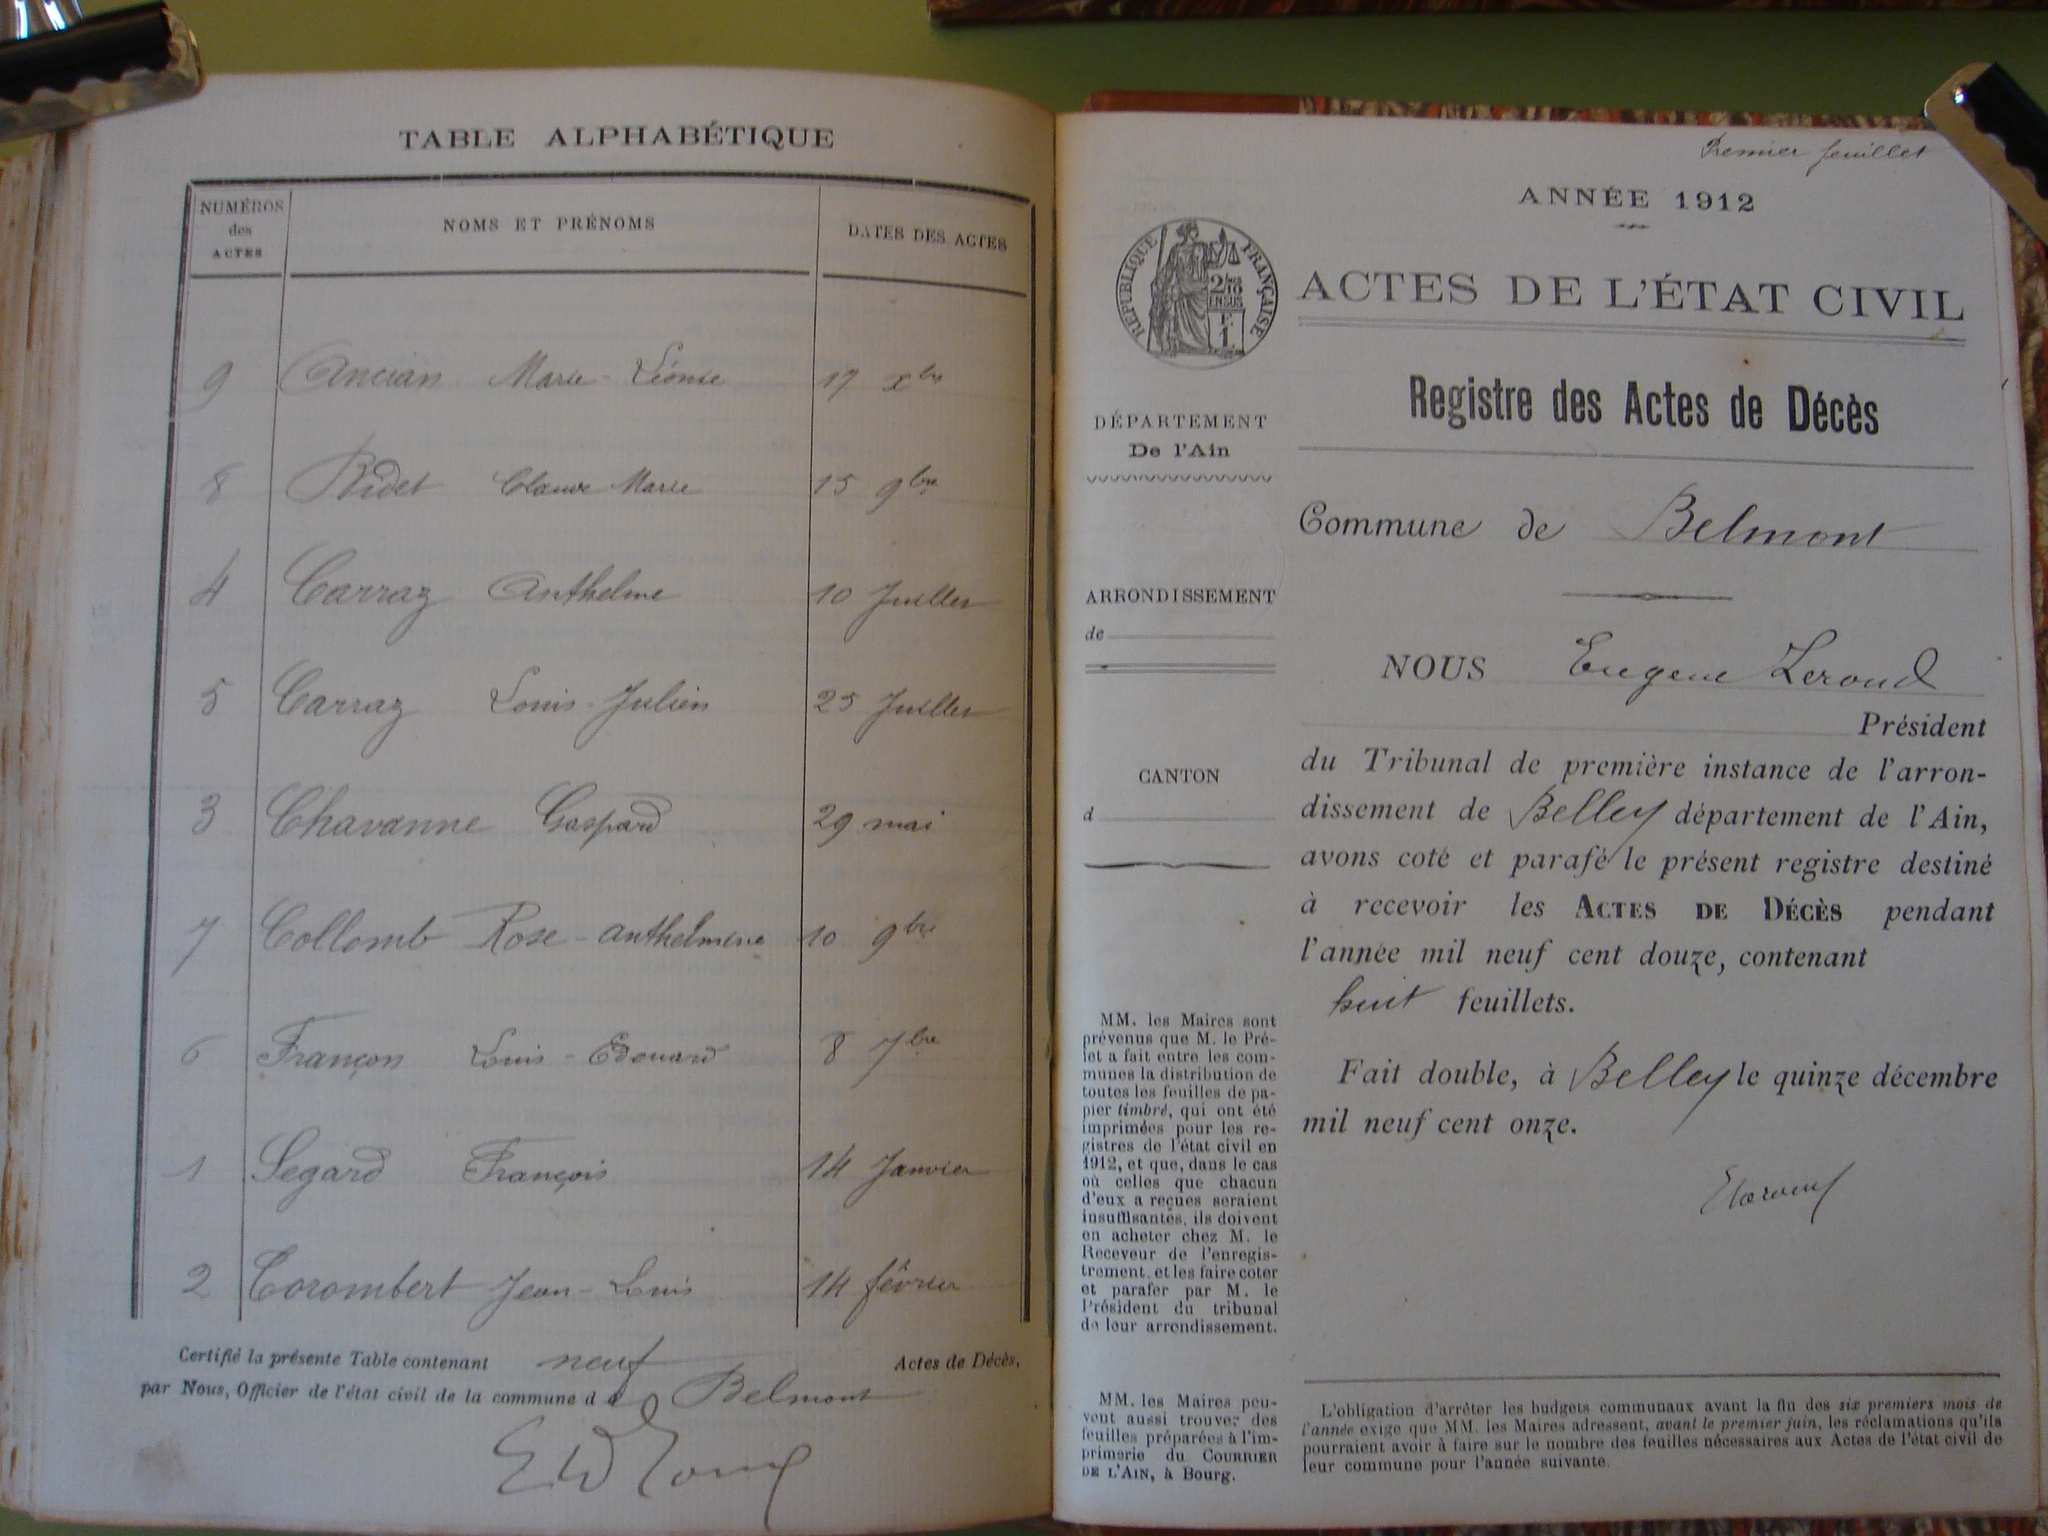 TABLE ALPHABÉTIQUE
NUMÉROS des ACTES NOMS ET PRÉNOMS DATES DES ACTES
9 Ancian Marie-Léonie 17 xbre
8 Bidet Claude Marie 15 9bre
4 Carraz Anthelme 10 Juillet
5 Carraz Louis-Julien 25 Juillet
3 Chavanne Gaspard 29 mai
7 Collomb Rose-Anthelmine 10 9bre
6 Françon Louis-Edouard 8 7bre
1 Segard François 14 Janvier
2 Corombert Jean-Louis 14 février
Certifié la présente Table contenant neuf Actes de Décès,
par Nous, Officier de l'état civil de la commune d e Belmont
Premier feuillet
ANNÉE 1912
RÉPUBLIQUE FRANÇAISE
ACTES DE L'ÉTAT CIVIL
Registre des Actes de Décès
DÉPARTEMENT
De l'Ain
Commune de Belmont
ARRONDISSEMENT
de
NOUS Eugene Leroud
Président
du Tribunal de première instance de l'arron-
CANTON
d
dissement de Belley département de l'Ain,
avons coté et parafé le présent registre destiné
à recevoir les ACTES DE DÉCÈS pendant
l'année mil neuf cent douze, contenant
huit feuillets.
Fait double, à Belley le quinze décembre
mil neuf cent onze.
MM. les Maires sont
prévenus que M. le Pré-
fet a fait entre les com-
munes la distribution de
toutes les feuilles de pa-
pier timbré, qui ont été
imprimées pour les re-
gistres de l'état civil en
1912, et que, dans le cas
où celles que chacun
d'eux a reçues seraient
insuffisantes, ils doivent
en acheter chez M. le
Receveur de l'enregis-
trement, et les faire coter
et parafer par M. le
Président du tribunal
de leur arrondissement.
MM. les Maires peu-
vent aussi trouver des
feuilles préparées à l'im-
primerie du COURRIER
DE L'AIN, à Bourg.
L'obligation d'arrêter les budgets communaux avant la fin des six premiers mois de
l'année exige que MM. les Maires adressent, avant le premier juin, les réclamations qu'ils
pourraient avoir à faire sur le nombre des feuilles nécessaires aux Actes de l'état civil de
leur commune pour l'année suivante.